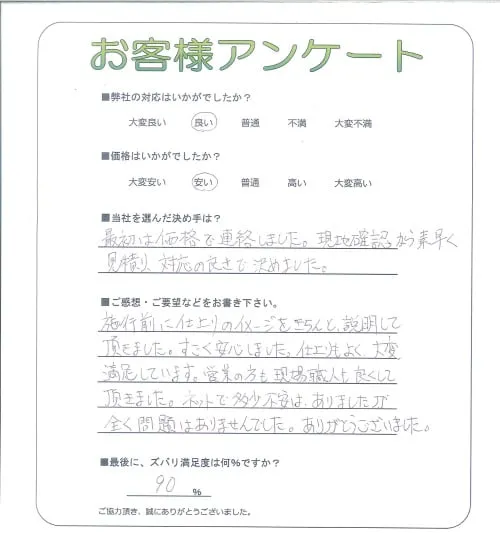 お客様アンケート
■弊社の対応はいかがでしたか？
大変良い 良い 普通 不満 大変不満
■価格はいかがでしたか？
大変安い 安い 普通 高い 大変高い
■当社を選んだ決め手は？
最初は価格で連絡しました。現地確認から素早く
見積り、対応の良さで決めました。
■ご感想・ご要望などをお書き下さい。
施行前に仕上りのイメージをきちんと、説明して
頂きました。すごく安心しました。仕上りもよく、大変
満足しています。営業の方も現場職人も良くして
頂きました。ネットで多少不安は、ありましたが
全く問題はありませんでした。ありがとうございました。
■最後に、ズバリ満足度は何%ですか？
90 %
ご協力頂き、誠にありがとうございました。